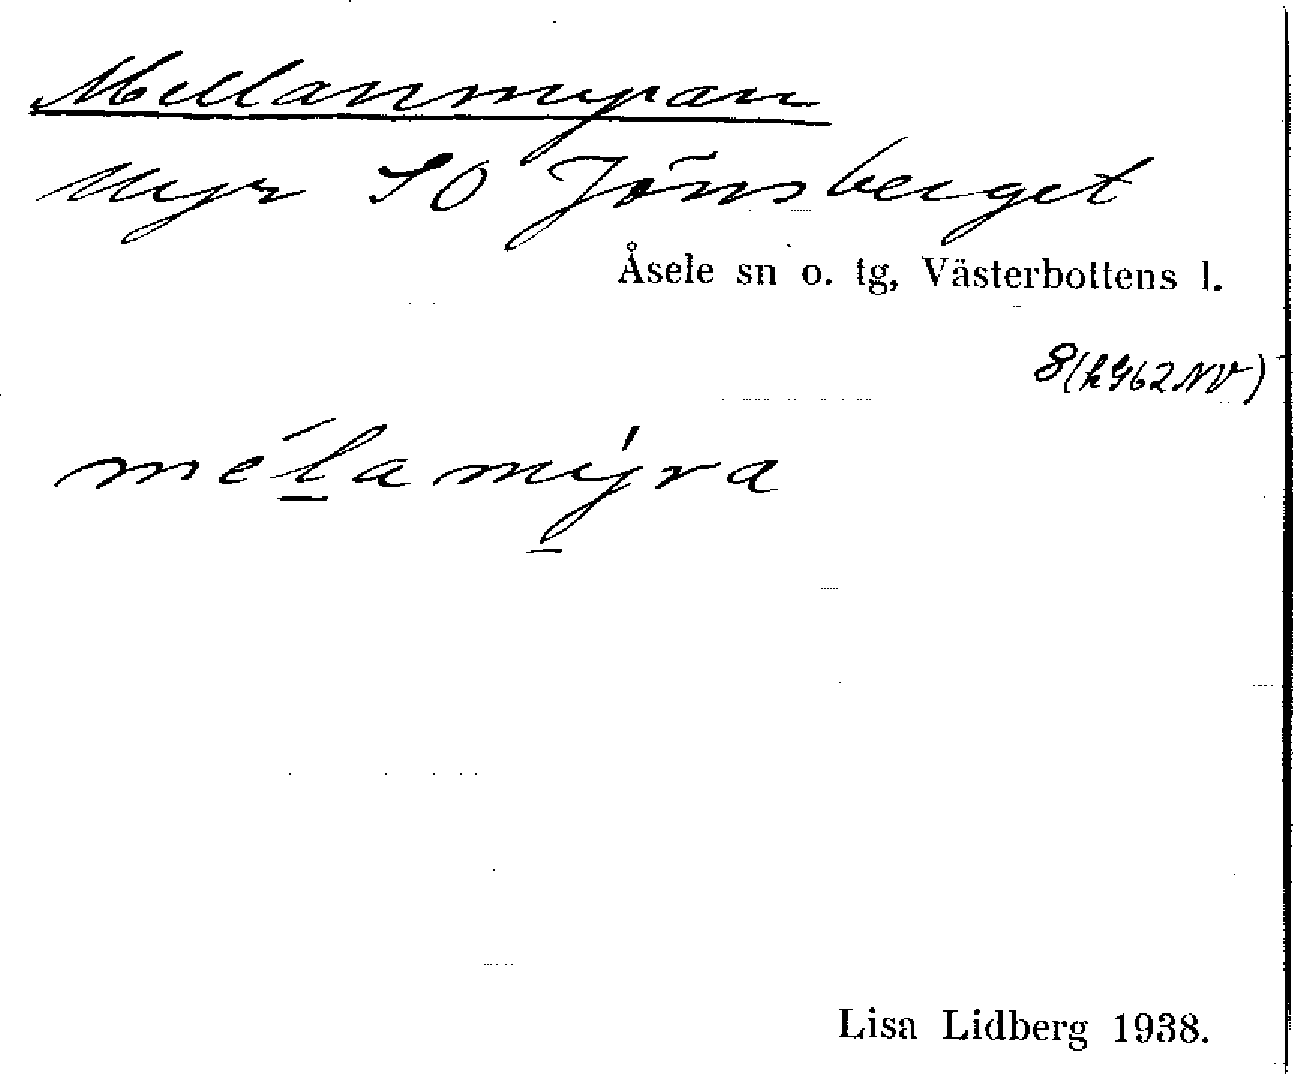 Mellanmyran
Myr SO Jönsberget
Åsele sn o. tg, Västerbottens l.
mélamýra
Lisa Lidberg 1938.